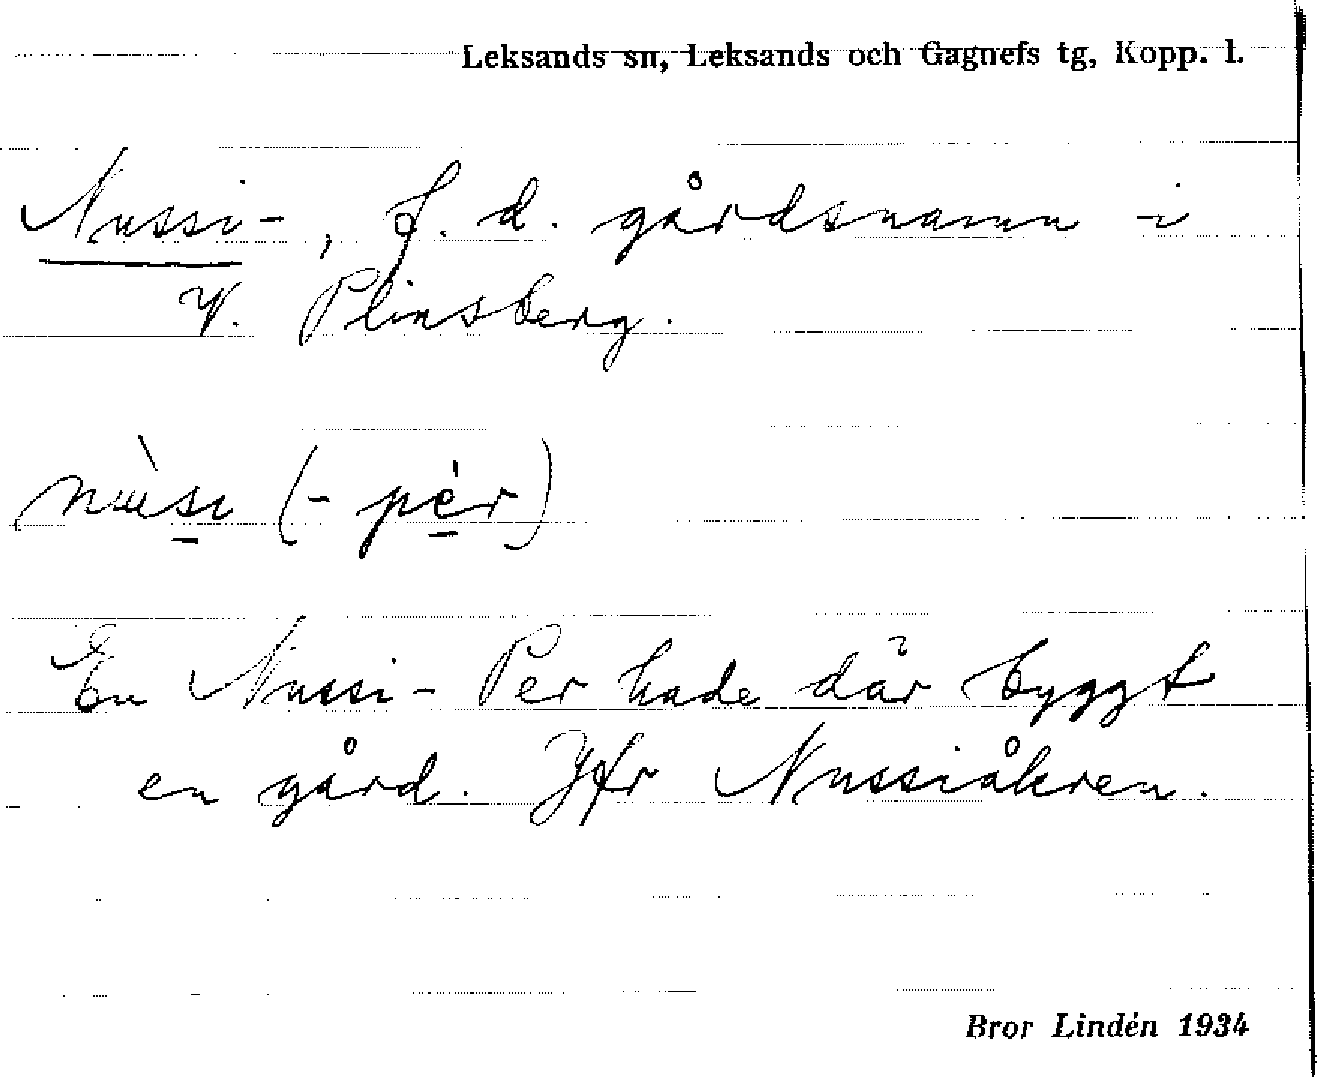 Leksands sn, Leksands och Gagnefs tg, Kopp. l.
Nussi-, f. d. gårdsnamn i
V. Plintsberg.
nùsi (-pèr)
En Nussi-Per hade där byggt
en gård. Jfr Nussiåkren.
Bror Lindén 1934